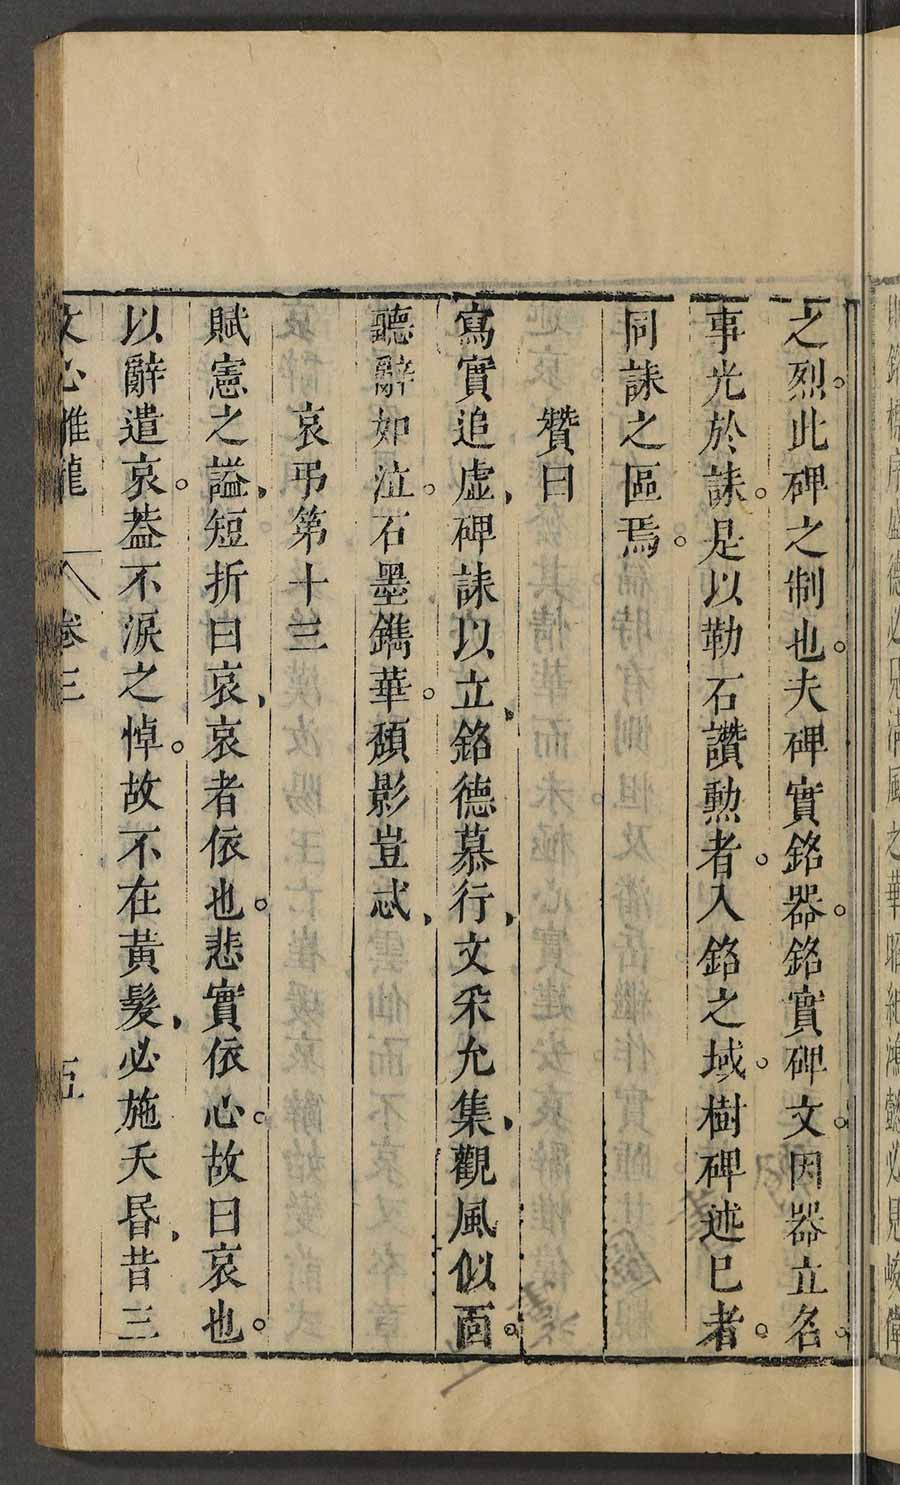 之烈。此碑之制也。夫碑實銘器。銘實碑文。因器立名。
事光於誄。是以勒石讚勲者。入銘之域。樹碑述巳者。
同誄之區焉。
贊曰
寫實追虛，碑誄以立，銘德慕行，文采允集，觀風似面。
聽辭如泣。石墨鐫華。頹影豈忒，
哀弔第十三
賦憲之謚，短折曰哀，哀者依也。悲實依心。故曰哀也。
以辭遣哀。葢不淚之悼。故不在黃髮，必施夭昬，昔三
文心雕龍 卷三 五